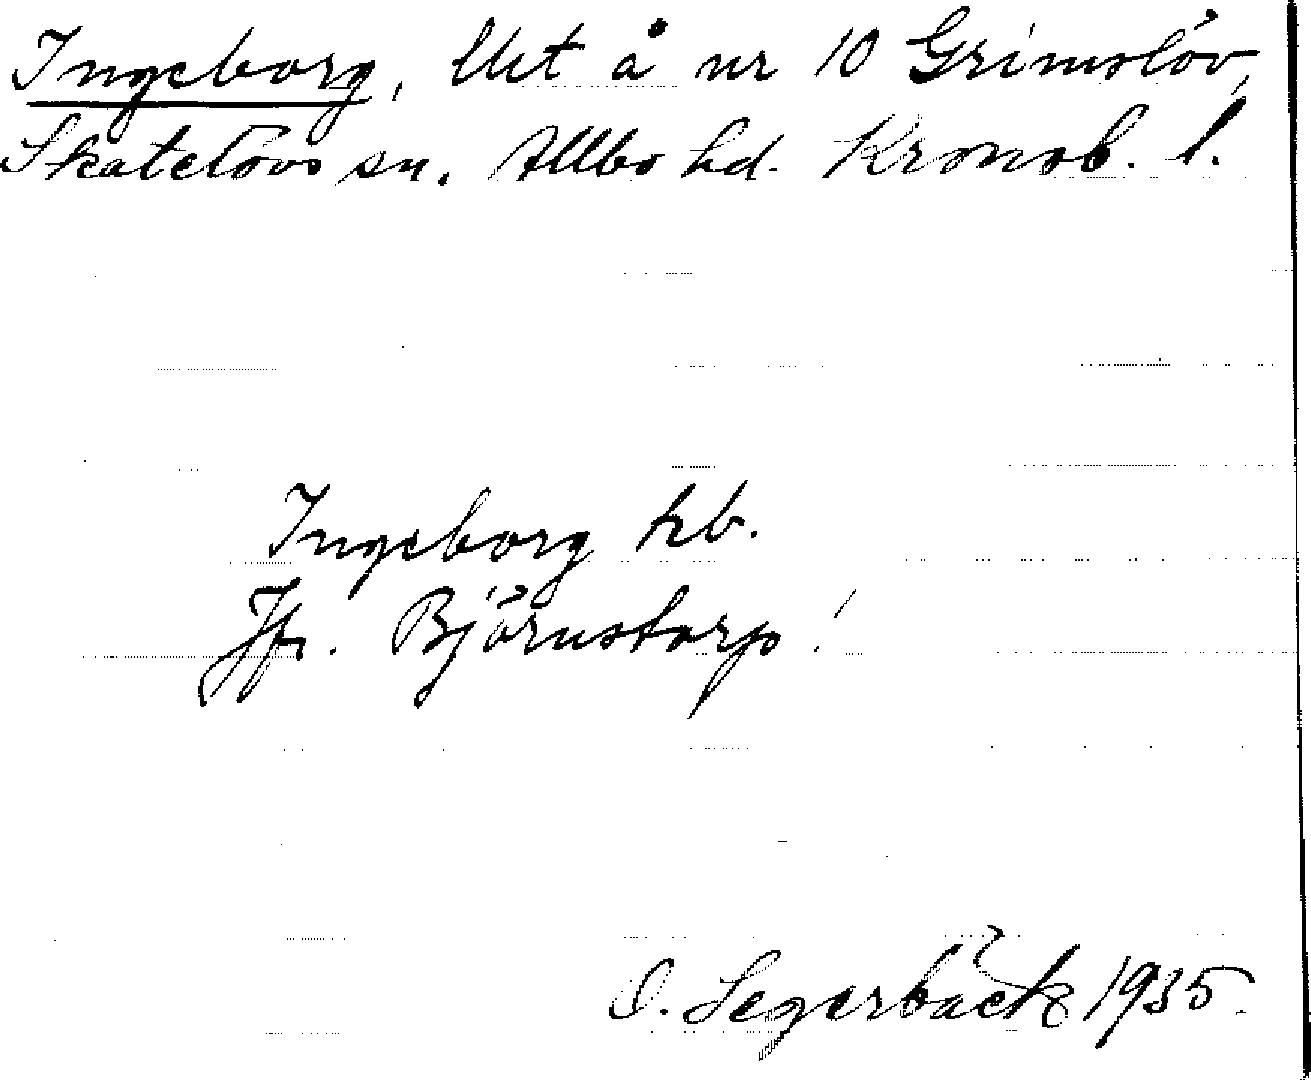 Ingeborg, Utet å nr 10 Grimslöv,
Skatelövs sn. Allbo hd. Kronob. l.
Ingeborg hb.
Jfr. Björnstorp!
O. Segerbäck 1935.